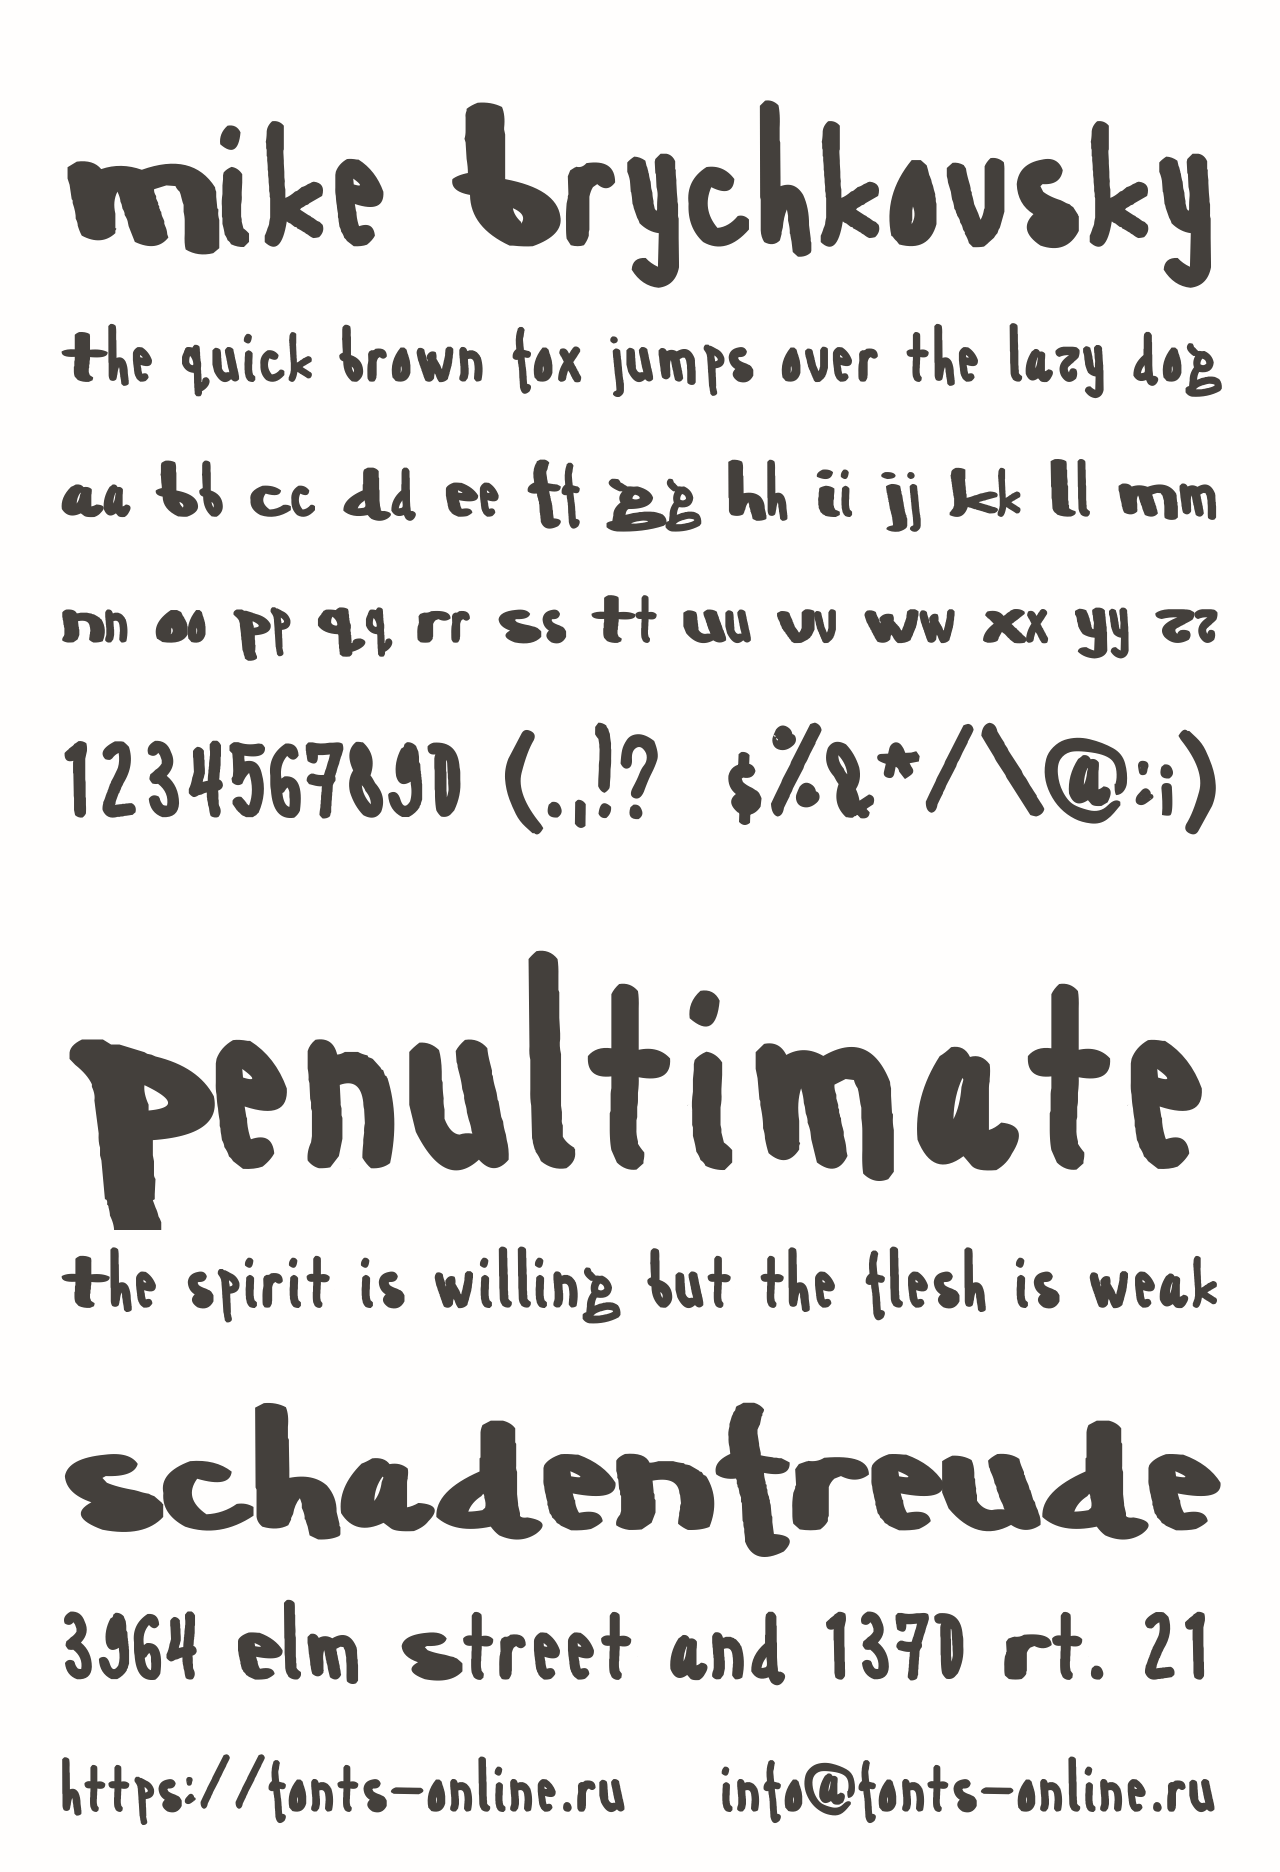 mike brychkovsky
the quick brown fox jumps over the lazy dog
aa bb cc dd ee ff gg hh ii jj kk ll mm
nn oo pp qq rr ss tt uu vv ww xx yy zz
1234567890 (.,!? $%&*/\@:;)
penultimate
the spirit is willing but the flesh is weak
schadenfreude
3964 elm street and 1370 rt. 21
https://fonts-online.ru info@fonts-online.ru